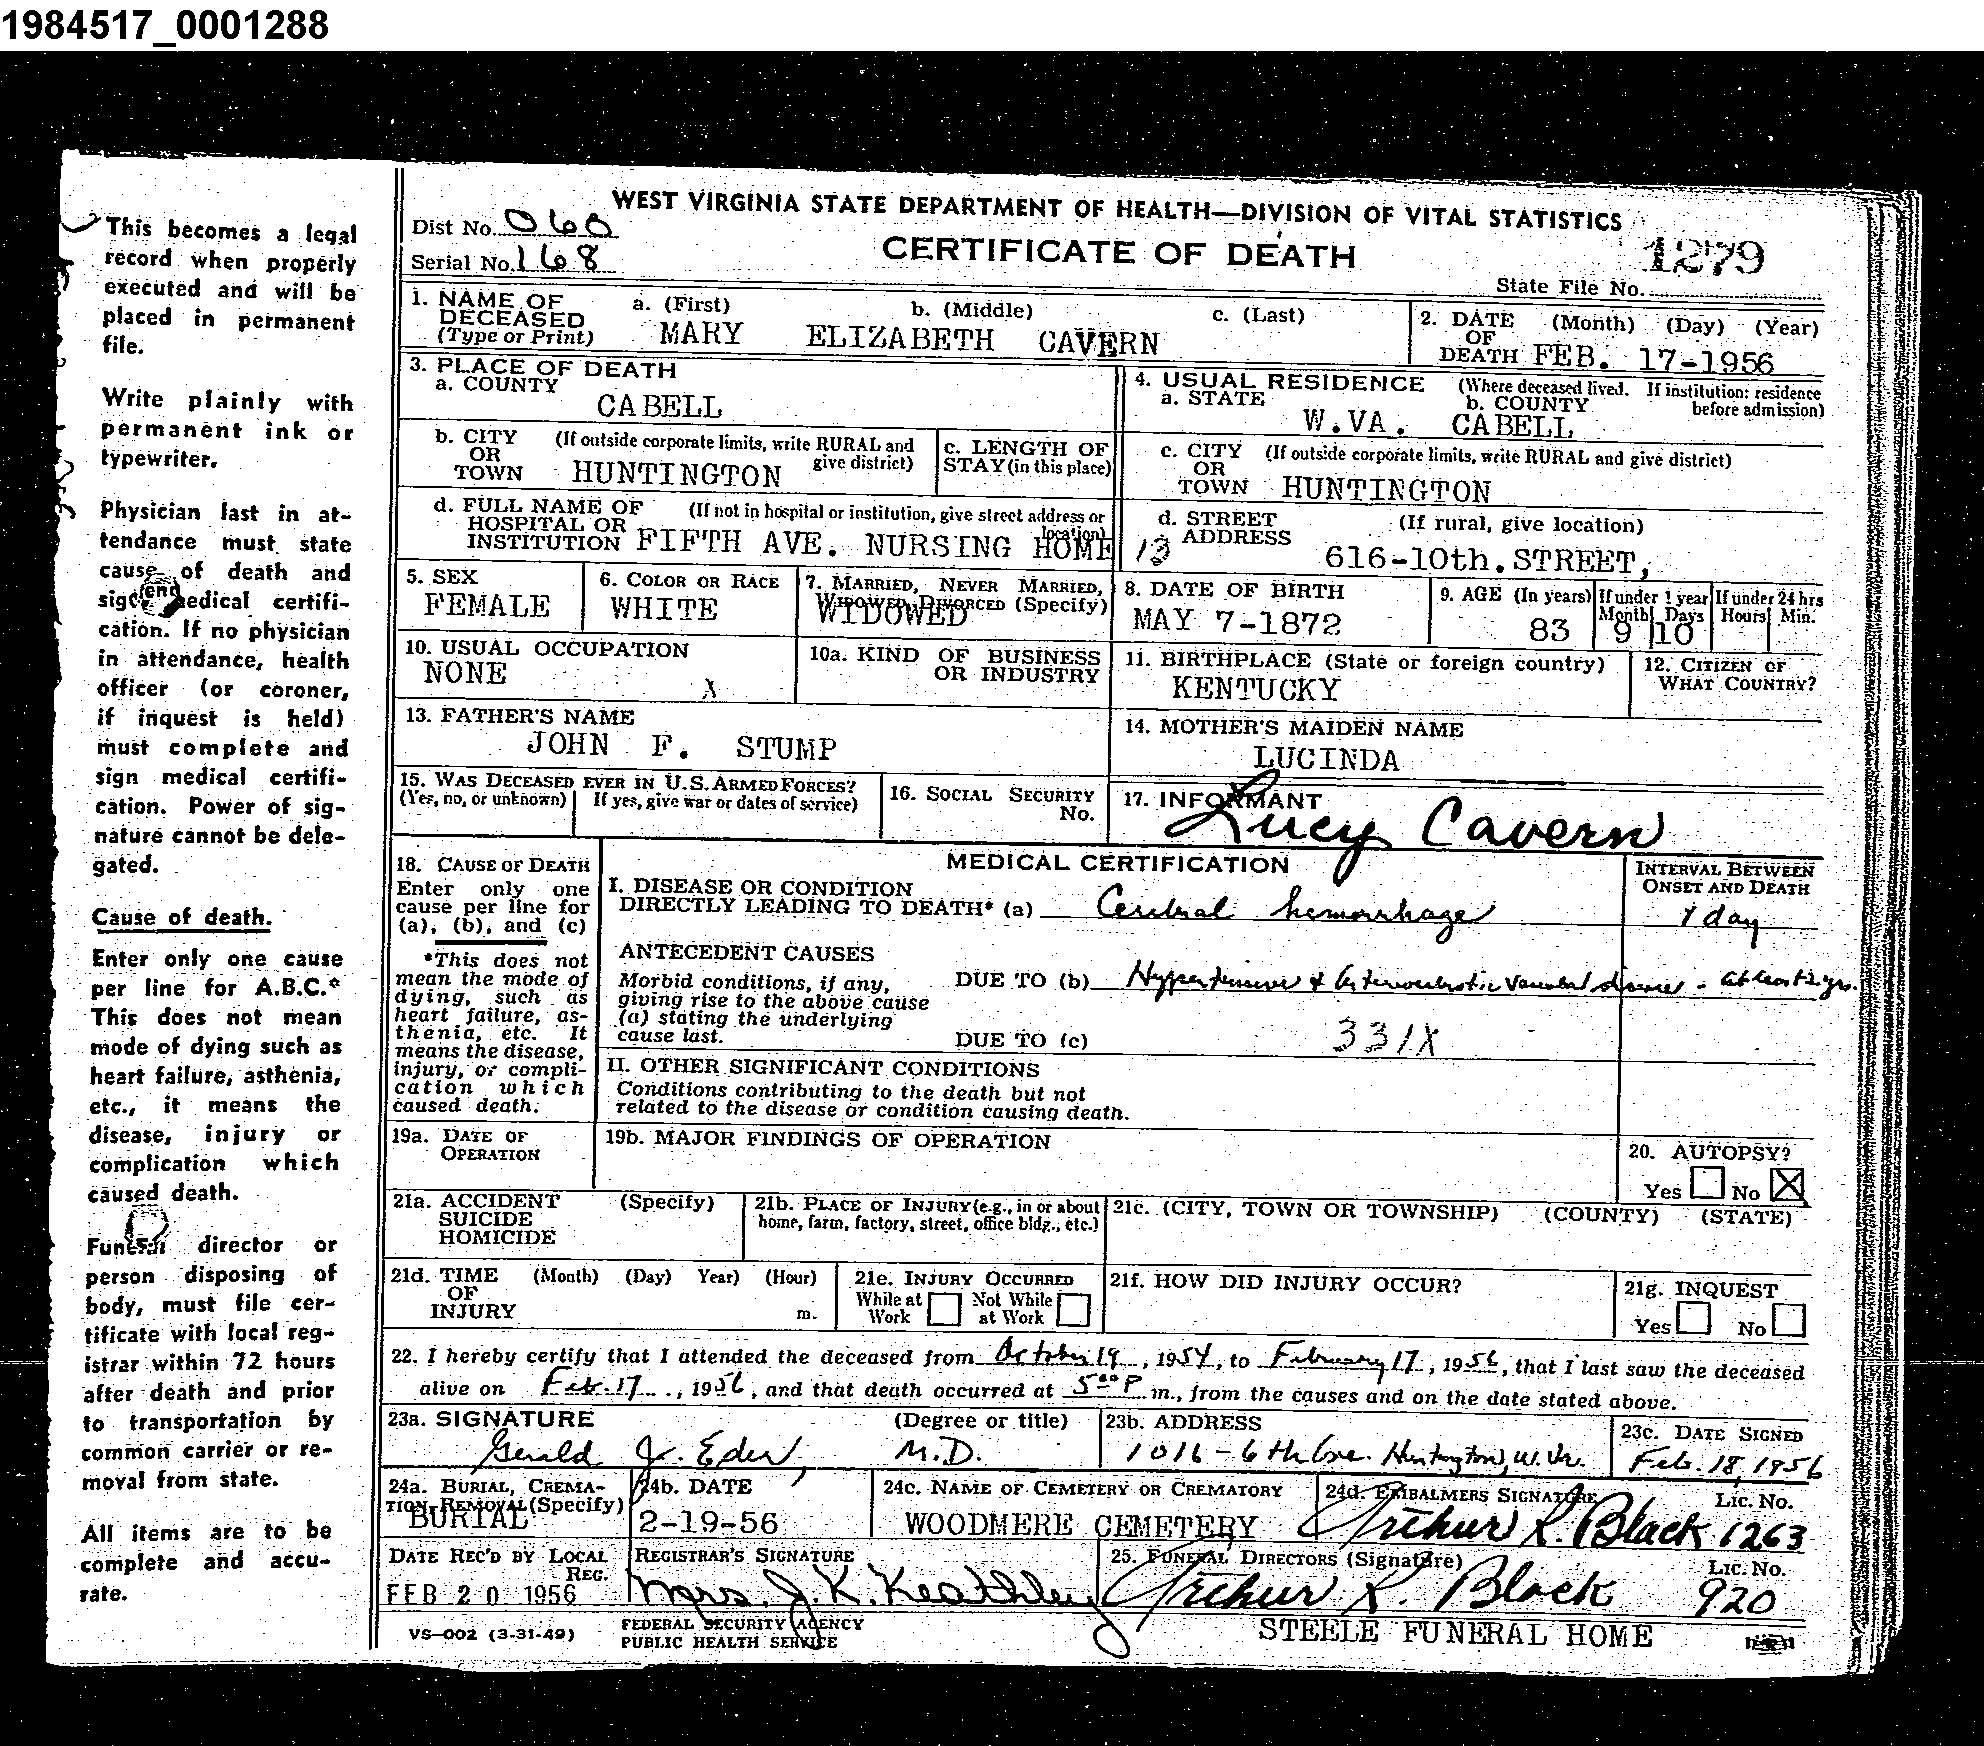 1984517_0001288
This becomes a legal
record when properly
executed and will be
placed in permanent
file.
Write plainly with
permanent ink or
typewriter.
Physician last in at-
tendance must state
cause of death and
sign medical certifi-
cation. If no physician
in attendance, health
officer (or coroner,
if inquest is held)
must complete and
sign medical certifi-
cation. Power of sig-
nature cannot be dele-
gated.
Cause of death.
Enter only one cause
per line for A.B.C.*
This does not mean
mode of dying such as
heart failure, asthenia,
etc., it means the
disease, injury or
complication which
caused death.
Funeral director or
person disposing of
body, must file cer-
tificate with local reg-
istrar within 72 hours
after death and prior
to transportation by
common carrier or re-
moval from state.
All items are to be
complete and accu-
rate.
WEST VIRGINIA STATE DEPARTMENT OF HEALTH—DIVISION OF VITAL STATISTICS
Dist No. 060
CERTIFICATE OF DEATH
1279
Serial No. 168
State File No.
1. NAME OF DECEASED (Type or Print) a. (First) b. (Middle) c. (Last)
MARY ELIZABETH CAVERN
2. DATE OF DEATH (Month) (Day) (Year)
FEB. 17-1956
3. PLACE OF DEATH
a. COUNTY
CABELL
4. USUAL RESIDENCE (Where deceased lived. If institution: residence before admission)
a. STATE b. COUNTY
W.VA. CABELL
b. CITY OR TOWN (If outside corporate limits, write RURAL and give district)
HUNTINGTON
c. LENGTH OF STAY (in this place)
c. CITY OR TOWN (If outside corporate limits, write RURAL and give district)
HUNTINGTON
d. FULL NAME OF HOSPITAL OR INSTITUTION (If not in hospital or institution, give street address or location)
FIFTH AVE. NURSING HOME 13
d. STREET ADDRESS (If rural, give location)
616-10th. STREET,
5. SEX
FEMALE
6. COLOR OR RACE
WHITE
7. MARRIED, NEVER MARRIED, WIDOWED, DIVORCED (Specify)
WIDOWED
8. DATE OF BIRTH
MAY 7-1872
9. AGE (In years) If under 1 year Months Days If under 24 hrs Hours Min.
83 9 10
10. USUAL OCCUPATION
NONE X
10a. KIND OF BUSINESS OR INDUSTRY
11. BIRTHPLACE (State or foreign country)
KENTUCKY
12. CITIZEN OF WHAT COUNTRY?
13. FATHER'S NAME
JOHN F. STUMP
14. MOTHER'S MAIDEN NAME
LUCINDA
15. WAS DECEASED EVER IN U.S. ARMED FORCES?
(Yes, no, or unknown) If yes, give war or dates of service)
16. SOCIAL SECURITY No.
17. INFORMANT
Lucy Cavern
18. CAUSE OF DEATH
Enter only one
cause per line for
(a), (b), and (c)
*This does not
mean the mode of
dying, such as
heart failure, as-
thenia, etc. It
means the disease,
injury, or compli-
cation which
caused death.
MEDICAL CERTIFICATION
INTERVAL BETWEEN ONSET AND DEATH
I. DISEASE OR CONDITION
DIRECTLY LEADING TO DEATH* (a) Cerebral hemorrhage 1 day
ANTECEDENT CAUSES
Morbid conditions, if any,
giving rise to the above cause
(a) stating the underlying
cause last.
DUE TO (b) Hypertensive & Arteriosclerotic vascular disease - at least 2 yrs.
DUE TO (c) 331X
II. OTHER SIGNIFICANT CONDITIONS
Conditions contributing to the death but not
related to the disease or condition causing death.
19a. DATE OF OPERATION
19b. MAJOR FINDINGS OF OPERATION
20. AUTOPSY?
Yes No X
21a. ACCIDENT SUICIDE HOMICIDE (Specify)
21b. PLACE OF INJURY (e.g., in or about
home, farm, factory, street, office bldg., etc.)
21c. (CITY, TOWN OR TOWNSHIP) (COUNTY) (STATE)
21d. TIME OF INJURY (Month) (Day) Year) (Hour) m.
21e. INJURY OCCURRED
While at Work Not While at Work
21f. HOW DID INJURY OCCUR?
21g. INQUEST
Yes No
22. I hereby certify that I attended the deceased from October 19, 1954, to February 17, 1956, that I last saw the deceased
alive on Feb. 17, 1956, and that death occurred at 5:00 P m., from the causes and on the date stated above.
23a. SIGNATURE (Degree or title)
Gerald J. Eder, M.D.
23b. ADDRESS
1016 - 6th Ave. Huntington, W. Va.
23c. DATE SIGNED
Feb. 18, 1956
24a. BURIAL, CREMA-
TION, REMOVAL (Specify)
BURIAL
24b. DATE
2-19-56
24c. NAME OF CEMETERY OR CREMATORY
WOODMERE CEMETERY
24d. EMBALMERS SIGNATURE Lic. No.
Arthur R. Black 1263
DATE REC'D BY LOCAL REG.
FEB 20 1956
REGISTRAR'S SIGNATURE
Mrs. J. K. Keathley
25. FUNERAL DIRECTORS (Signature) Lic. No.
Arthur R. Black 920
VS-002 (3-31-49)
FEDERAL SECURITY AGENCY
PUBLIC HEALTH SERVICE
STEELE FUNERAL HOME